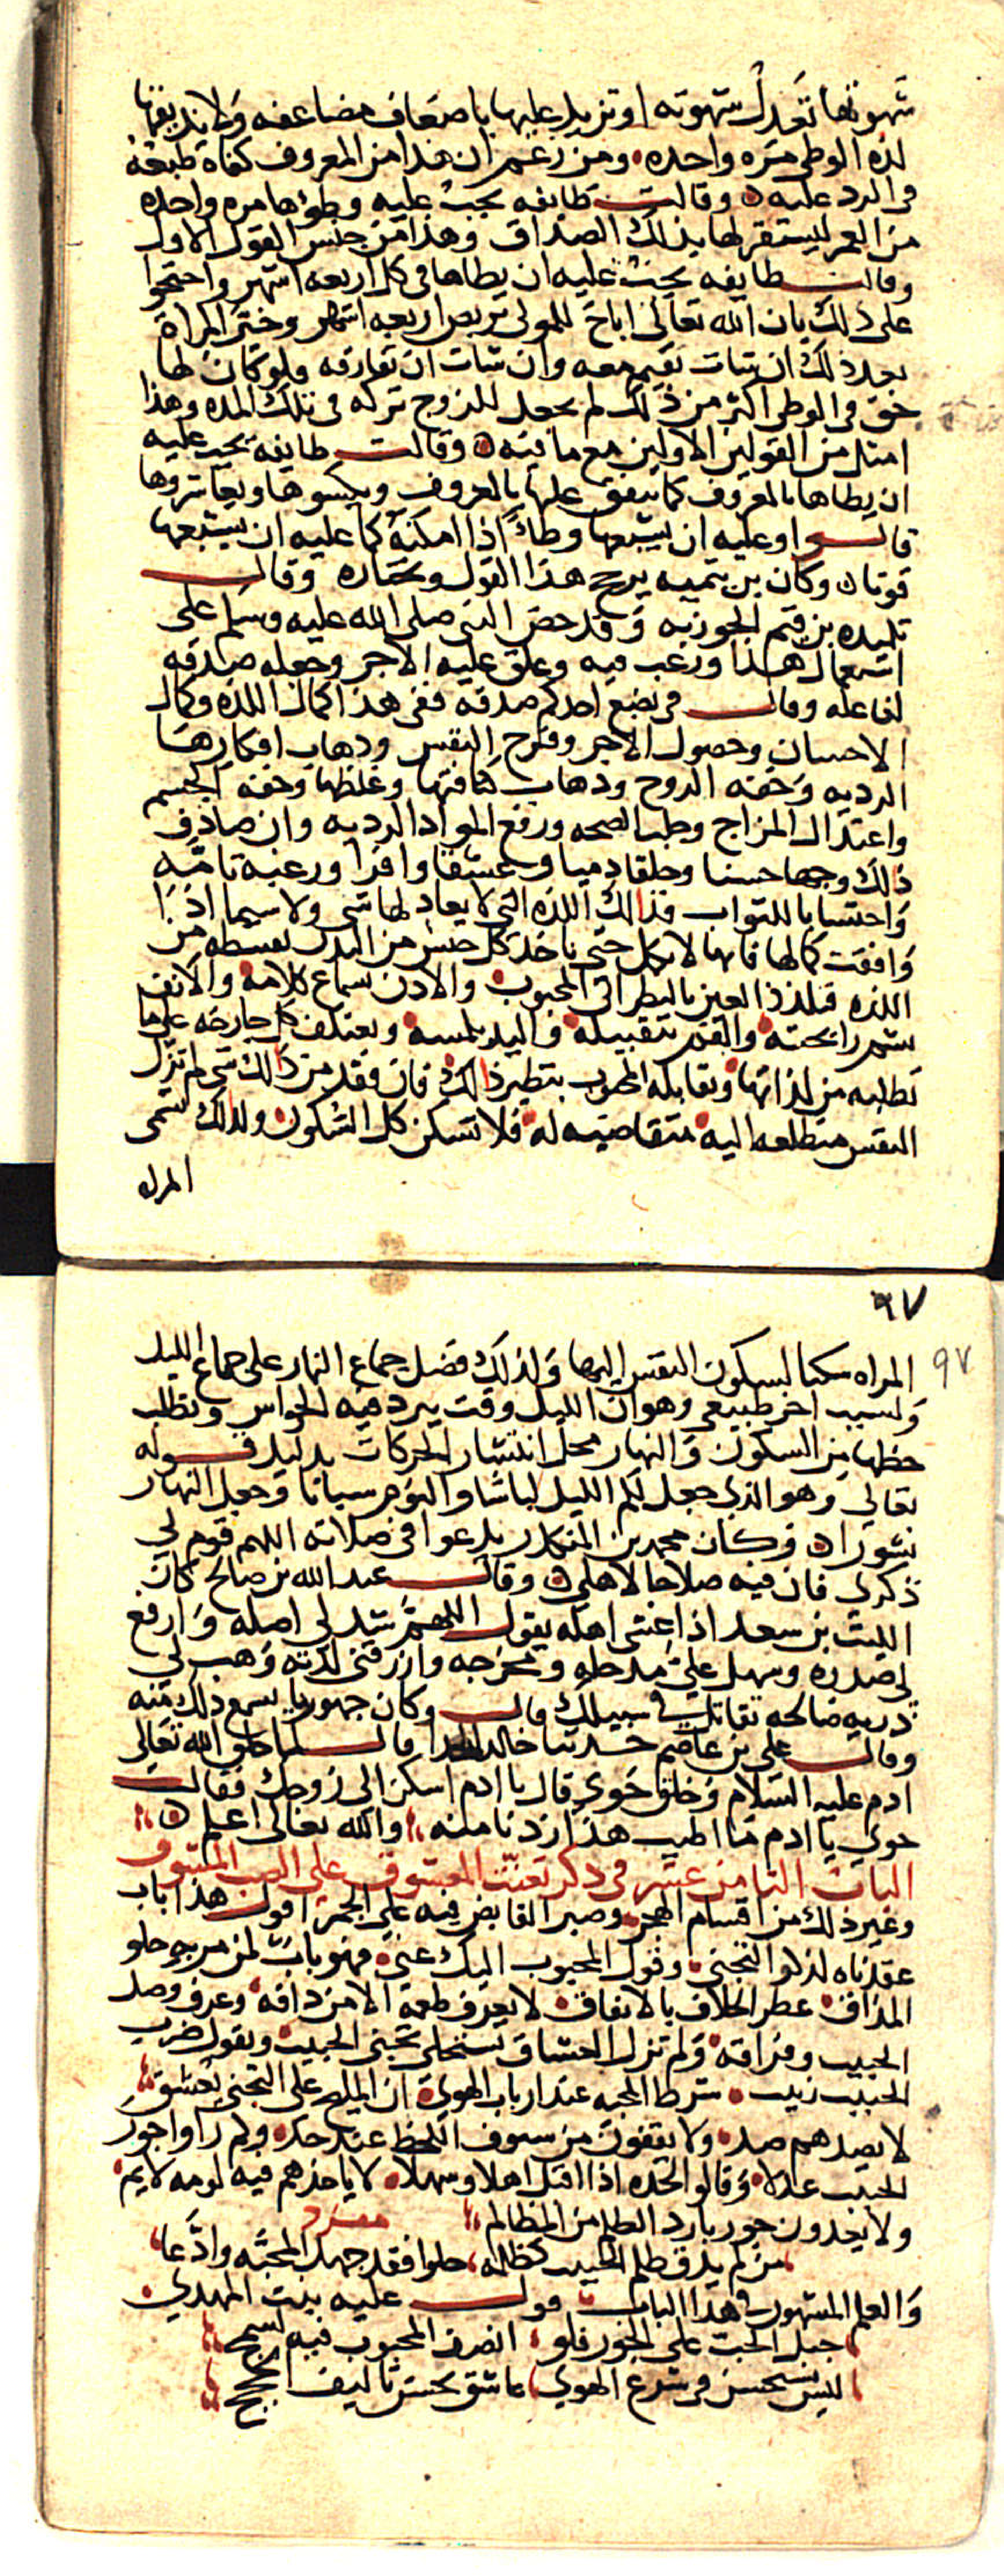 شهوتها تعدل شهوته او تزيد عليها باضعاف مضاعفه ولا يذيقها
لذه الوطى مره واحده ومن زعم ان هذا من المعروف كفاه طبعه
في الرد عليه وقالت طايفه يجب عليه وطوها مره واحده
من العمر ليستقر لها بذلك الصداق وهذا من جنس القول الاول
وقالت طايفه يجب عليه ان يطاها في كل اربعه اشهر واحتجوا
على ذلك بان الله تعالى اباح للمولى تربص اربعه اشهر وخير المراة
بعد ذلك ان شات تقيم معه وان شات ان تفارقه فلو كان لها
حق في الوطى اكثر من ذلك لم يجعل للزوج تركه في تلك المده وهذا
امثل من القولين الاولين مع ما فيه وقالت طايفه يجب عليه
ان يطاها بالمعروف كما ينفق عليها بالمعروف ويكسوها ويعاشروها
قالوا وعليه ان يشبعها وطاً اذا امكنه كما عليه ان يشبعها
قوتا وكان بن تيميه يرجح هذا القول ويختاره وقال
تلميده بن قيم الجوزيه وقد حض النبى صلى الله عليه وسلم على
استعمال هذا ورغب فيه وعلق عليه الاجر وجعله صدقه
لفاعله وقال في بضع احدكم صدقه ففى هذا كمال اللذه وكمال
الاحسان وحصول الاجر وفرح النفس وذهاب افكارها
الرديه وخفه الروح وذهاب كثافتها وغلظها وخفه الجسم
واعتدال المزاج وجلب الصحه ودفع المواد الرديه وان صادف
ذلك وجها حسنا وخلقا دميا وعشقا وافرا ورغبه تامه
واحتسابا للثواب فذالك اللذه التي لا يعادلها شى ولا سيما اذا
وافقت كمالها فانها لا تكمل حتى ياخذ كل جنس من البدن بقسطه من
اللذه فتلتذ العين بالنظر الى المحبوب والاذن بسماع كلامه والانف
بشم رايحته والفم بتقبيله واليد بلمسه وتعتكف كل جارحه على ما
تطلبه من لذاتها وتقابله المحبوب بنظير ذالك فان فقد من ذالك شى لم تزل
النفس متطلعه اليه متقاضيه له فلا تسكن كل السكون ولذلك تسمى
المراه
٩٧
٩٧
المراه سكنا لسكون النفس اليها ولذلك فضل جماع النهار على جماع الليل
ولسبب اخر طبيعى وهو ان الليل وقت يبرد فيه الحواس وتطلب
حظها من السكون والنهار محل انتشار الحركات بدليل قوله
تعالى وهو الذي جعل لكم الليل لباسا والنوم سباتا وجعل النهار
نشورا وكان محمد بن المنكدر يدعوا في صلاته اللهم قوم لي
ذكرى فان فيه صلاحا لاهلي وقال عبد الله بن صالح كان
الليث بن سعد اذا غشى اهله يقول اللهم شد لي اصله وارفع
لي صدره وسهل علي مدخله ومخرجه وارزقنى لذته وهب لي
ذريه صالحه تقاتل في سبيلك قال وكان جهوريا يسمع ذلك منه
وقال على بن عاصم حدثنا خالد الحدا قال لما خلق الله تعالى
ادم عليه السلام وخلق حوى قال يا ادم اسكن الى زوجك فقالت
حوى يا ادم ما اطيب هذا زدنا منه والله تعالى اعلم
الباب الثامن عشر في ذكر تعنت المعشوق على الصب المشوق
وغير ذلك من اقسام الهجر وصبر القابض فيه على الجمر اقول هذا باب
عقدناه لذكر التجنى وقول المحبوب اليك عني فهو باب لمن مر به حلو
المذاق عطر الخلاف بالاتفاق لا يعرف طعمه الا من ذاقه وعرف وصل
الحبيب وفراقه ولم تزل العشاق تستحلى تجنى الحبيب وتقول ضرب
الحبيب زبيب شرط المحبه عند ارباب الهوى ان المليح على التجنى يعشق
لا يصدهم صد ولا يقفون من سيوف اللحظ عند حد ولم راوا جور
الحبيب عدلا وقالوا لخده اذا اقبل اهلا وسهلا لا ياخذهم فيه لومه لايم
ولا يخدون جور بارد الظلم من المظالم مفرد
من لم يذق ظلم الحبيب كظلمه حلوا فقد جهل المحبه وادعا
والعلم المشهور في هذا الباب قول عليه بنت المهدي
جبل الحب على الجور فلو انصف المحبوب فيه لسمج
ليس يستحسن في شرع الهوى عاشق يحسن تاليف الحجج